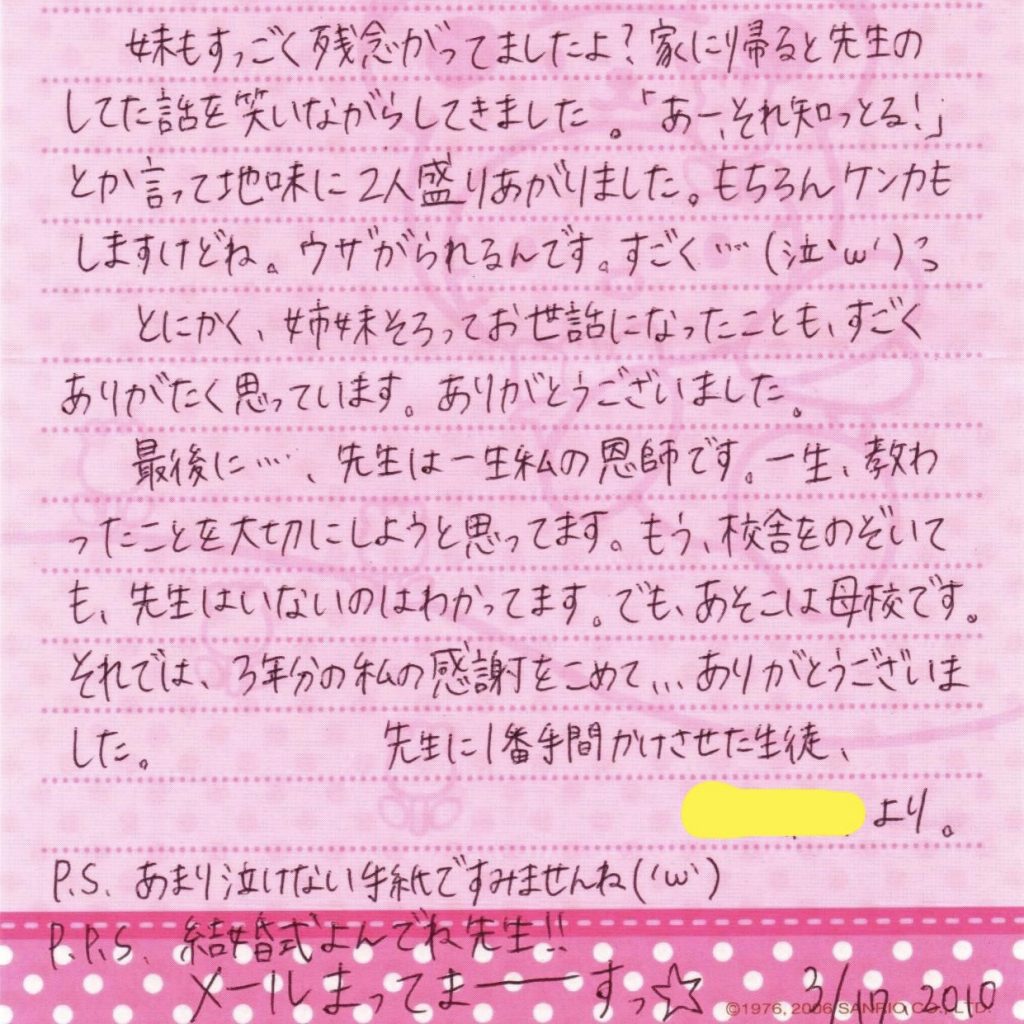 妹もすっごく残念がってましたよ？家に帰ると先生の
してた話を笑いながらしてきました。「あー、それ知っとる！」
とか言って地味に2人盛りあがりました。もちろんケンカも
しますけどね。ウザがられるんです。すごく…（泣'ω'）っ
とにかく、姉妹そろってお世話になったことも、すごく
ありがたく思っています。ありがとうございました。
最後に…、先生は一生私の恩師です。一生、教わ
ったことを大切にしようと思ってます。もう、校舎をのぞいて
も、先生はいないのはわかってます。でも、あそこは母校です。
それでは、3年分の私の感謝をこめて…ありがとうございま
した。 先生に1番手間かけさせた生徒、
より。
P.S. あまり泣けない手紙ですみませんね('ω')
P.P.S. 結婚式よんでね先生!!
メールまってまーーすっ☆ 3/17 2010
©1976, 2006 SANRIO CO., LTD.